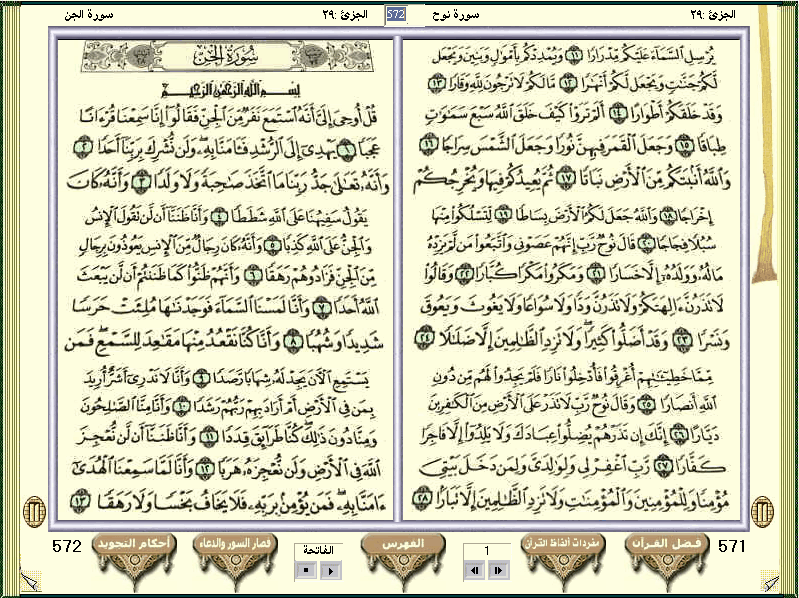 الجزئ :٢٩
سورة نوح
572
الجزئ :٢٩
سورة الجن
يُرْسِلِ السَّمَآءَ عَلَيْكُم مِّدْرَارًا ١١ وَيُمْدِدْكُم بِأَمْوَٰلٍ وَبَنِينَ وَيَجْعَل
لَّكُمْ جَنَّٰتٍ وَيَجْعَل لَّكُمْ أَنْهَٰرًا ١٢ مَّا لَكُمْ لَا تَرْجُونَ لِلَّهِ وَقَارًا ١٣
وَقَدْ خَلَقَكُمْ أَطْوَارًا ١٤ أَلَمْ تَرَوْا۟ كَيْفَ خَلَقَ ٱللَّهُ سَبْعَ سَمَٰوَٰتٍ
طِبَاقًا ١٥ وَجَعَلَ ٱلْقَمَرَ فِيهِنَّ نُورًا وَجَعَلَ ٱلشَّمْسَ سِرَاجًا ١٦
وَٱللَّهُ أَنۢبَتَكُم مِّنَ ٱلْأَرْضِ نَبَاتًا ١٧ ثُمَّ يُعِيدُكُمْ فِيهَا وَيُخْرِجُكُمْ
إِخْرَاجًا ١٨ وَٱللَّهُ جَعَلَ لَكُمُ ٱلْأَرْضَ بِسَاطًا ١٩ لِّتَسْلُكُوا۟ مِنْهَا
سُبُلًا فِجَاجًا ٢٠ قَالَ نُوحٌ رَّبِّ إِنَّهُمْ عَصَوْنِى وَٱتَّبَعُوا۟ مَن لَّمْ يَزِدْهُ
مَالُهُۥ وَوَلَدُهُۥٓ إِلَّا خَسَارًا ٢١ وَمَكَرُوا۟ مَكْرًا كُبَّارًا ٢٢ وَقَالُوا۟
لَا تَذَرُنَّ ءَالِهَتَكُمْ وَلَا تَذَرُنَّ وَدًّا وَلَا سُوَاعًا وَلَا يَغُوثَ وَيَعُوقَ
وَنَسْرًا ٢٣ وَقَدْ أَضَلُّوا۟ كَثِيرًا وَلَا تَزِدِ ٱلظَّٰلِمِينَ إِلَّا ضَلَٰلًا ٢٤
مِّمَّا خَطِيٓـَٰٔتِهِمْ أُغْرِقُوا۟ فَأُدْخِلُوا۟ نَارًا فَلَمْ يَجِدُوا۟ لَهُم مِّن دُونِ
ٱللَّهِ أَنصَارًا ٢٥ وَقَالَ نُوحٌ رَّبِّ لَا تَذَرْ عَلَى ٱلْأَرْضِ مِنَ ٱلْكَٰفِرِينَ
دَيَّارًا ٢٦ إِنَّكَ إِن تَذَرْهُمْ يُضِلُّوا۟ عِبَادَكَ وَلَا يَلِدُوٓا۟ إِلَّا فَاجِرًا
كَفَّارًا ٢٧ رَّبِّ ٱغْفِرْ لِى وَلِوَٰلِدَىَّ وَلِمَن دَخَلَ بَيْتِىَ
مُؤْمِنًا وَلِلْمُؤْمِنِينَ وَٱلْمُؤْمِنَٰتِ وَلَا تَزِدِ ٱلظَّٰلِمِينَ إِلَّا تَبَارًۢا ٢٨
سُورَةُ الجِنّ
بِسْمِ ٱللَّهِ ٱلرَّحْمَٰنِ ٱلرَّحِيمِ
قُلْ أُوحِىَ إِلَىَّ أَنَّهُ ٱسْتَمَعَ نَفَرٌ مِّنَ ٱلْجِنِّ فَقَالُوٓا۟ إِنَّا سَمِعْنَا قُرْءَانًا
عَجَبًا ١ يَهْدِىٓ إِلَى ٱلرُّشْدِ فَـَٔامَنَّا بِهِۦ وَلَن نُّشْرِكَ بِرَبِّنَآ أَحَدًا ٢
وَأَنَّهُۥ تَعَٰلَىٰ جَدُّ رَبِّنَا مَا ٱتَّخَذَ صَٰحِبَةً وَلَا وَلَدًا ٣ وَأَنَّهُۥ كَانَ
يَقُولُ سَفِيهُنَا عَلَى ٱللَّهِ شَطَطًا ٤ وَأَنَّا ظَنَنَّآ أَن لَّن تَقُولَ ٱلْإِنسُ
وَٱلْجِنُّ عَلَى ٱللَّهِ كَذِبًا ٥ وَأَنَّهُۥ كَانَ رِجَالٌ مِّنَ ٱلْإِنسِ يَعُوذُونَ بِرِجَالٍ
مِّنَ ٱلْجِنِّ فَزَادُوهُمْ رَهَقًا ٦ وَأَنَّهُمْ ظَنُّوا۟ كَمَا ظَنَنتُمْ أَن لَّن يَبْعَثَ
ٱللَّهُ أَحَدًا ٧ وَأَنَّا لَمَسْنَا ٱلسَّمَآءَ فَوَجَدْنَٰهَا مُلِئَتْ حَرَسًا
شَدِيدًا وَشُهُبًا ٨ وَأَنَّا كُنَّا نَقْعُدُ مِنْهَا مَقَٰعِدَ لِلسَّمْعِ فَمَن
يَسْتَمِعِ ٱلْـَٔانَ يَجِدْ لَهُۥ شِهَابًا رَّصَدًا ٩ وَأَنَّا لَا نَدْرِىٓ أَشَرٌّ أُرِيدَ
بِمَن فِى ٱلْأَرْضِ أَمْ أَرَادَ بِهِمْ رَبُّهُمْ رَشَدًا ١٠ وَأَنَّا مِنَّا ٱلصَّٰلِحُونَ
وَمِنَّا دُونَ ذَٰلِكَ كُنَّا طَرَآئِقَ قِدَدًا ١١ وَأَنَّا ظَنَنَّآ أَن لَّن نُّعْجِزَ
ٱللَّهَ فِى ٱلْأَرْضِ وَلَن نُّعْجِزَهُۥ هَرَبًا ١٢ وَأَنَّا لَمَّا سَمِعْنَا ٱلْهُدَىٰٓ
ءَامَنَّا بِهِۦ فَمَن يُؤْمِنۢ بِرَبِّهِۦ فَلَا يَخَافُ بَخْسًا وَلَا رَهَقًا ١٣
571
فضل القرآن
مفردات ألفاظ القرآن
1
الفهرس
الفاتحة
قصار السور والدعاء
أحكام التجويد
572